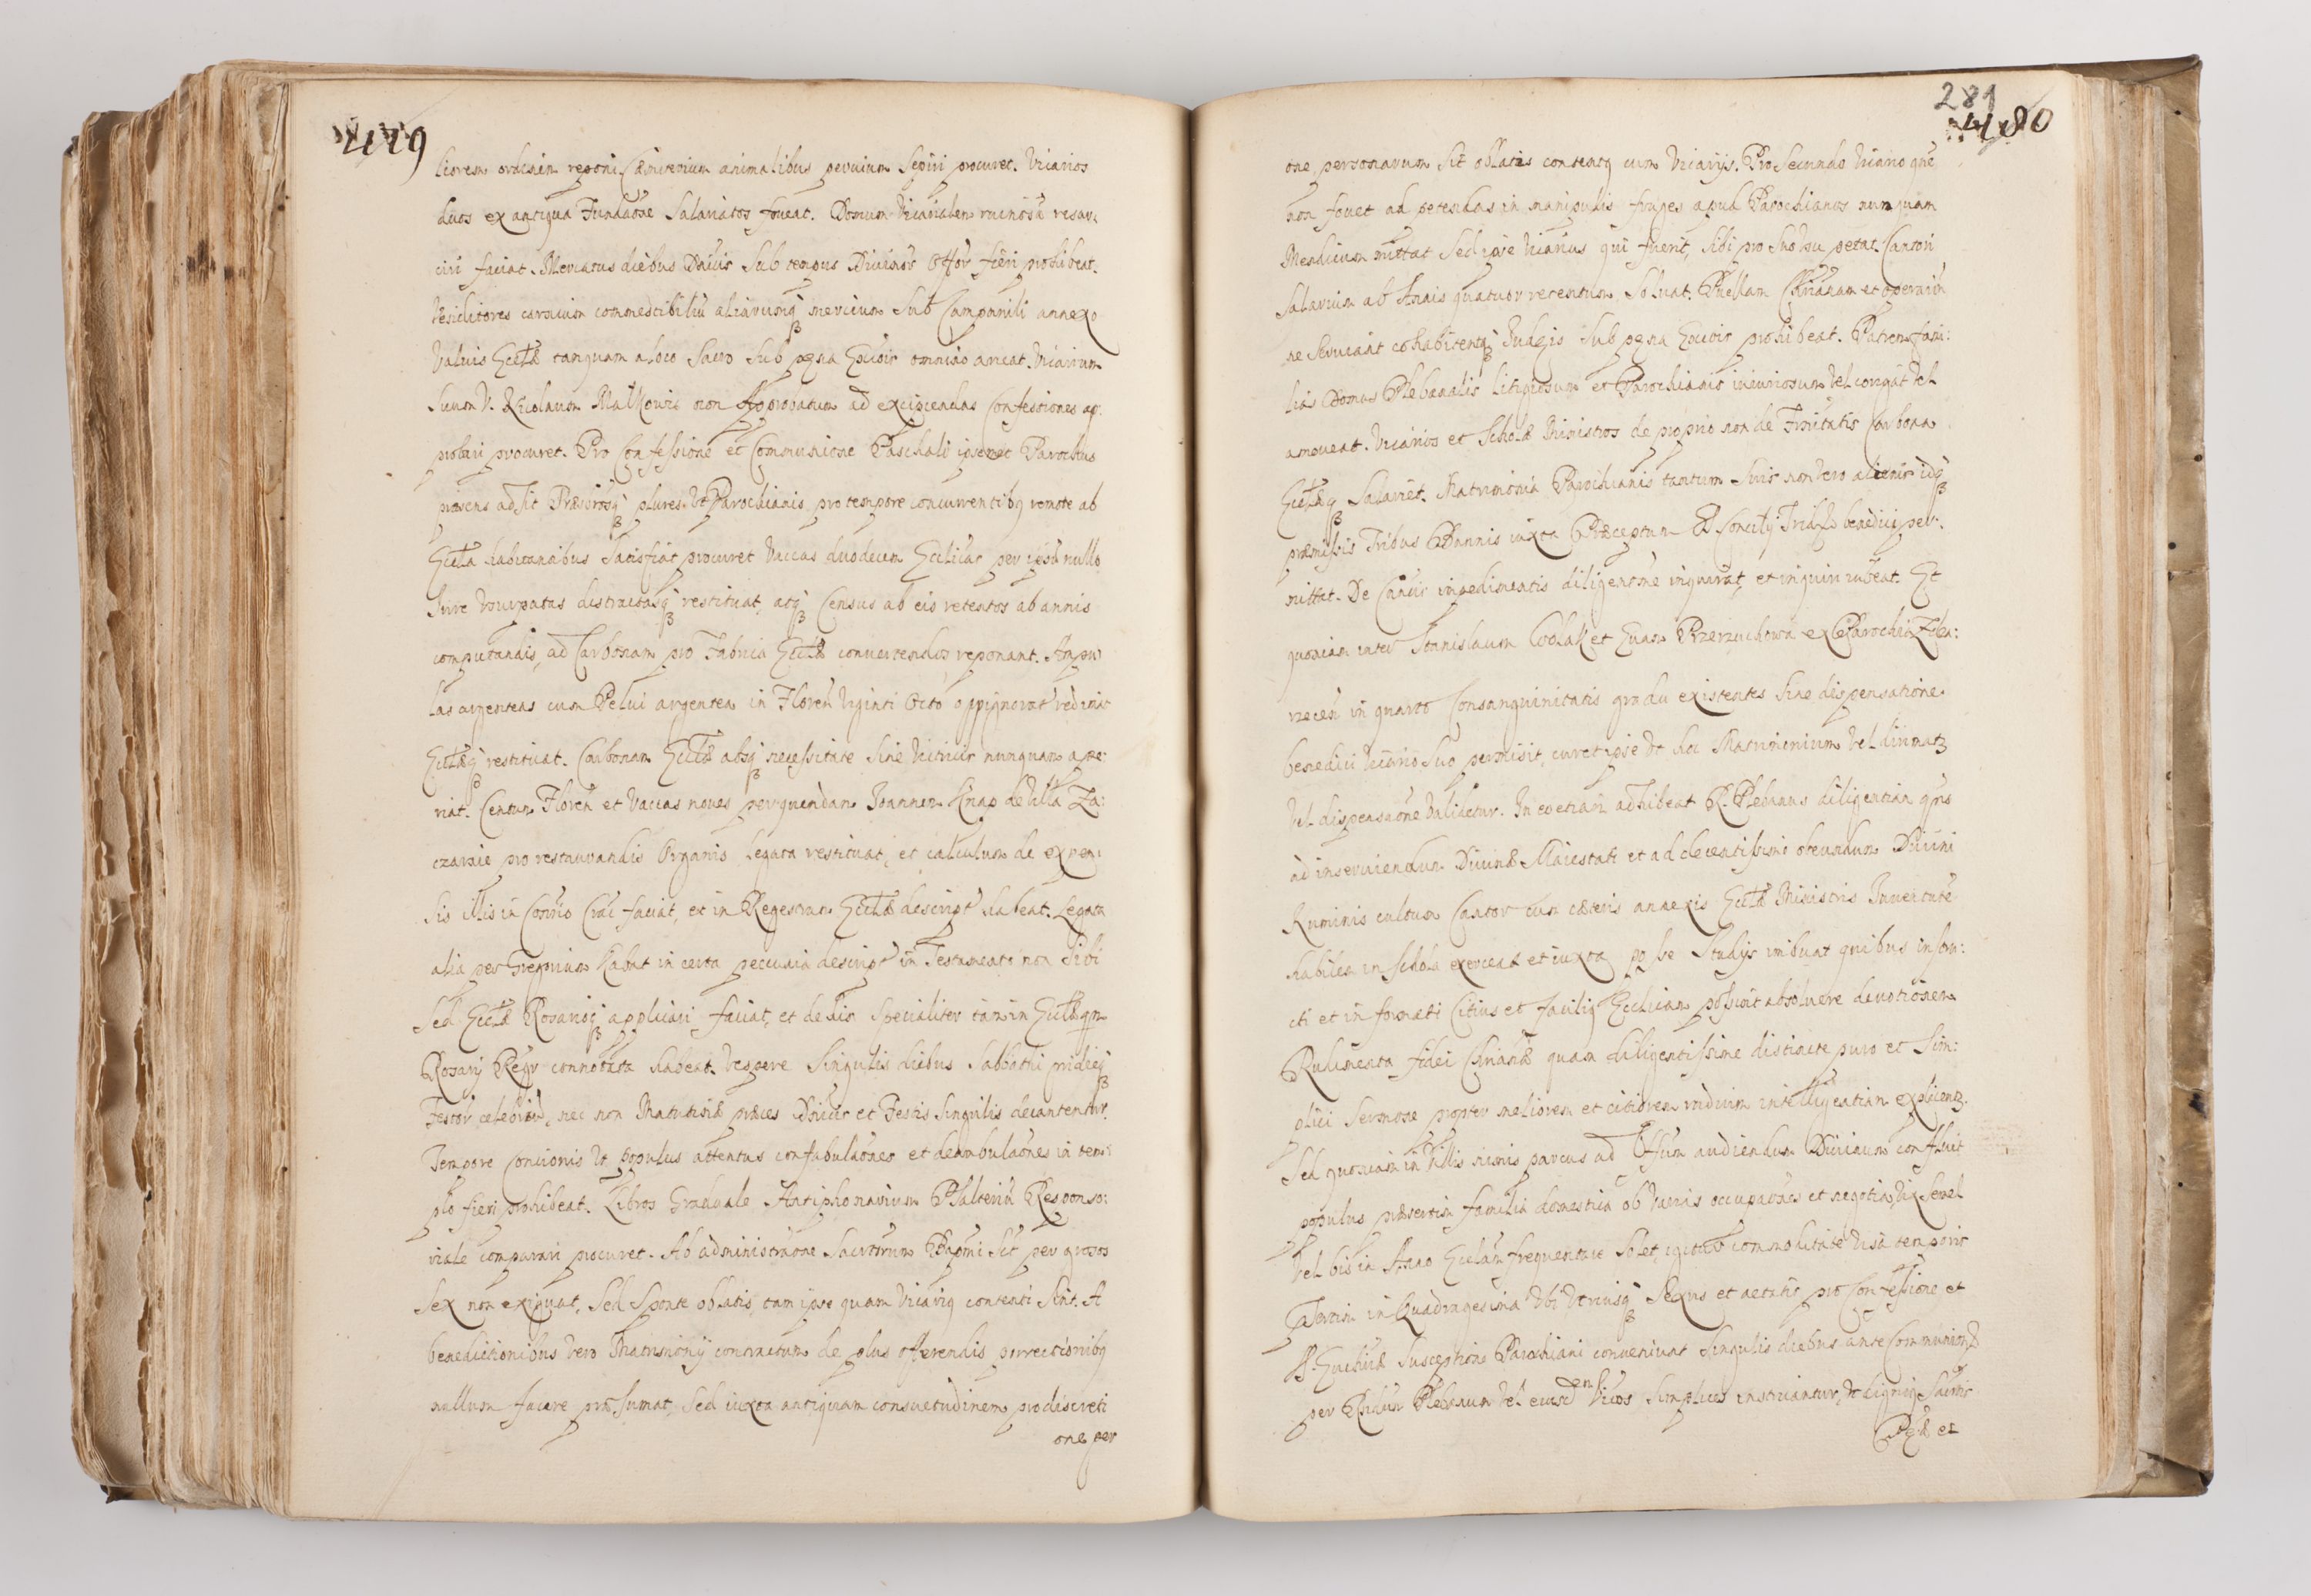 479
liorem ordinem reponi. Cæmiterium animalibus pervium sepiri procuret. Vicarios
duos ex antiqua Fundaone salariatos foveat. Domum Vicarialem ruinosã resar,
ciri faciat. Mercatus diebus Dnicis sub tempus Divinor Offor fieri prohibeat.
Venditores carnium commestibiliũ aliarumq merciũm sub Campanili annexo
Valvis Eccłæ tanquam a loco sacro sub pęna Excõis omnino arceat. Vicarium
suum V. Nicolaum Malkowic non Approbatum ad excipiendas Confessiones ap:
probari procuret. Pro Confessione et Communione Paschali ipsemet Parochus
præsens adsit Præsbrosq plures Vt Parochianis pro tempore concurrentibq remote ab
Eccła habitantibus satisfiat procuret Vaccas duodecem Eccliãs per ipsũ nullo
Iure vsurpatas distractasq restituat, atq Census ab eis retentos ab annis
computandis, ad Carbonam pro Fabrica Eccłæ convertendos reponant. Ampu
las argenteas cum Pelui argentea in Floren Viginti Octo oppignorat redimat
Eccłæq restituat. Carbonam Eccłæ absq necessitate sine Vitricis nunquam ape:
riat. Centum Floren et Vaccas novem per quendam Ioannem Knap de Villa Za:
czarnie pro restaurandis Organis legata restituat, et calculum de expen:
sis illis in Consrio Crac faciat, et in Regestram Eccłæ descript habeat. Legata
alia per Gregorium Kabat in certa pecunia descript in Testamento non sibi
sed Eccłæ Rosarioq applicari faciat, et de his specialiter tam in Eccłæ qm
Rosarij Regr connotata habeat. Vespere singulis diebus Sabbathi pridieq
Festor celebriũ, nec non Matutinæ præces Dnicis et Festis singulis decantentur.
Tempore Concionis Vt populus attentus confabulaones et deambulaones in tem:
plo fieri prohibeat. Libros Graduale Antiphonarium Psalteriũ Responso:
riale comparari procuret. Ab administraone Sacrtorum Baptmi scł per grosos
sex non exiguat, sed sponte oblatis, tam ipse quam Vicariq contenti sint. A
benedictionibus vero Matrimonij contractum de plus offerendis porrectionibq
nullum facere præsumat, sed iuxta antiquam consuetudinem pro discreti
one per
281
480
one personarum sit oblatis contentq cum Vicarijs. Pro secundo Vicario quẽ
non fovet ad petendas in manipulis fruges apud Parochianos nunquam
Mendicum mittat sed ipse Vicarius qui fuerit, sibi pro suo Vsu petat. Cantori
salarium ab Annis quatuor retentum soluat. Puellam Chrianam et operariũ
ne serviant cohabitentq Iudęis sub pęna Excõis prohibeat. Patrem fami:
lias Domus Plebanalis litigiosum et Parochianis iniuriosum Vel corrigat Vel
amoveat. Vicarios et Scholæ Ministros de proprio non de Trinitatis Carbona
Eccłæq salariet. Matrimonia Parochianis tantum suis non vero alienis idq
præmissis Tribus Bannis iuxta Præceptum S Concilij Tridẽ benedici per:
mittat. De Canicis impedimentis diligentme inquirat, et inquiri iubeat. Et
quoniam inter Stanislaum Wolak et Evam Przerzuchowa ex Parochia Zdza:
rzecen in quarto Consanguinitatis gradu existentes sine dispensatione
benedici Vicario suo permisit, curet ipse Vt hoc Matrimonium Vel dirimatz
Vel dispensaone Validetur. In eo etiam adhibeat R. Plebanus diligentiam qtns
ad inserviendum Divinæ Maiestati et ad decentissime obeundum Divini
Numinis cultum Cantor cum cæteris annexis Eccłæ Ministris Iuventutẽ
habilem in schola exerceat et iuxta posse studijs imbuat quibus instru:
cti et informati Citius et facilig Eccliam possint absolvere devotionem
Rudimenta fidei Chrianæ quam diligentissime distincte puro et sim:
plici sermone propter meliorem et citiorem rudium intelligentiam explicentz.
Sed quoniam in Villis nimis parcus ad Offium audiendum Divinum confluit
populus præsertim familia domestica ob varias occupaones et negotia, Vix semel
Vel bis in Anno Ecclam frequentare solet, igitur commoditate Visa temporis
Præsertim in Quadragesima Vbi Vtriusq sexus et aetatis pro Confessione et
S. Euchriæ susceptione Parochiani conveniunt singulis diebus ante Communionẽ
per Rndum Plebanum Vel eiusdem Vicos simplices instruantur, Vt digniq Sacris
Pęæ et